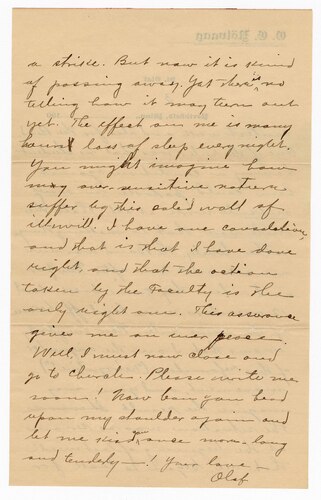 a strike. But now it is kind
of passing away. Yet there is no
telling how it may turn out
yet. The effect on me is many
hours loss of sleep every night.
You might imagine how
my over sensitive nature
suffer by this solid wall of
illwill. I have one consolation,
and that is that I have done
right, and that the action
taken by the Faculty is the
only right one. This assurance
gives me an iner peace.
Well, I must now close and
go to church. Please write me
soon! Now ban you head
upon my shoulder again and
let me kiss you once more - long
and tenderly -! Your love -
Olof